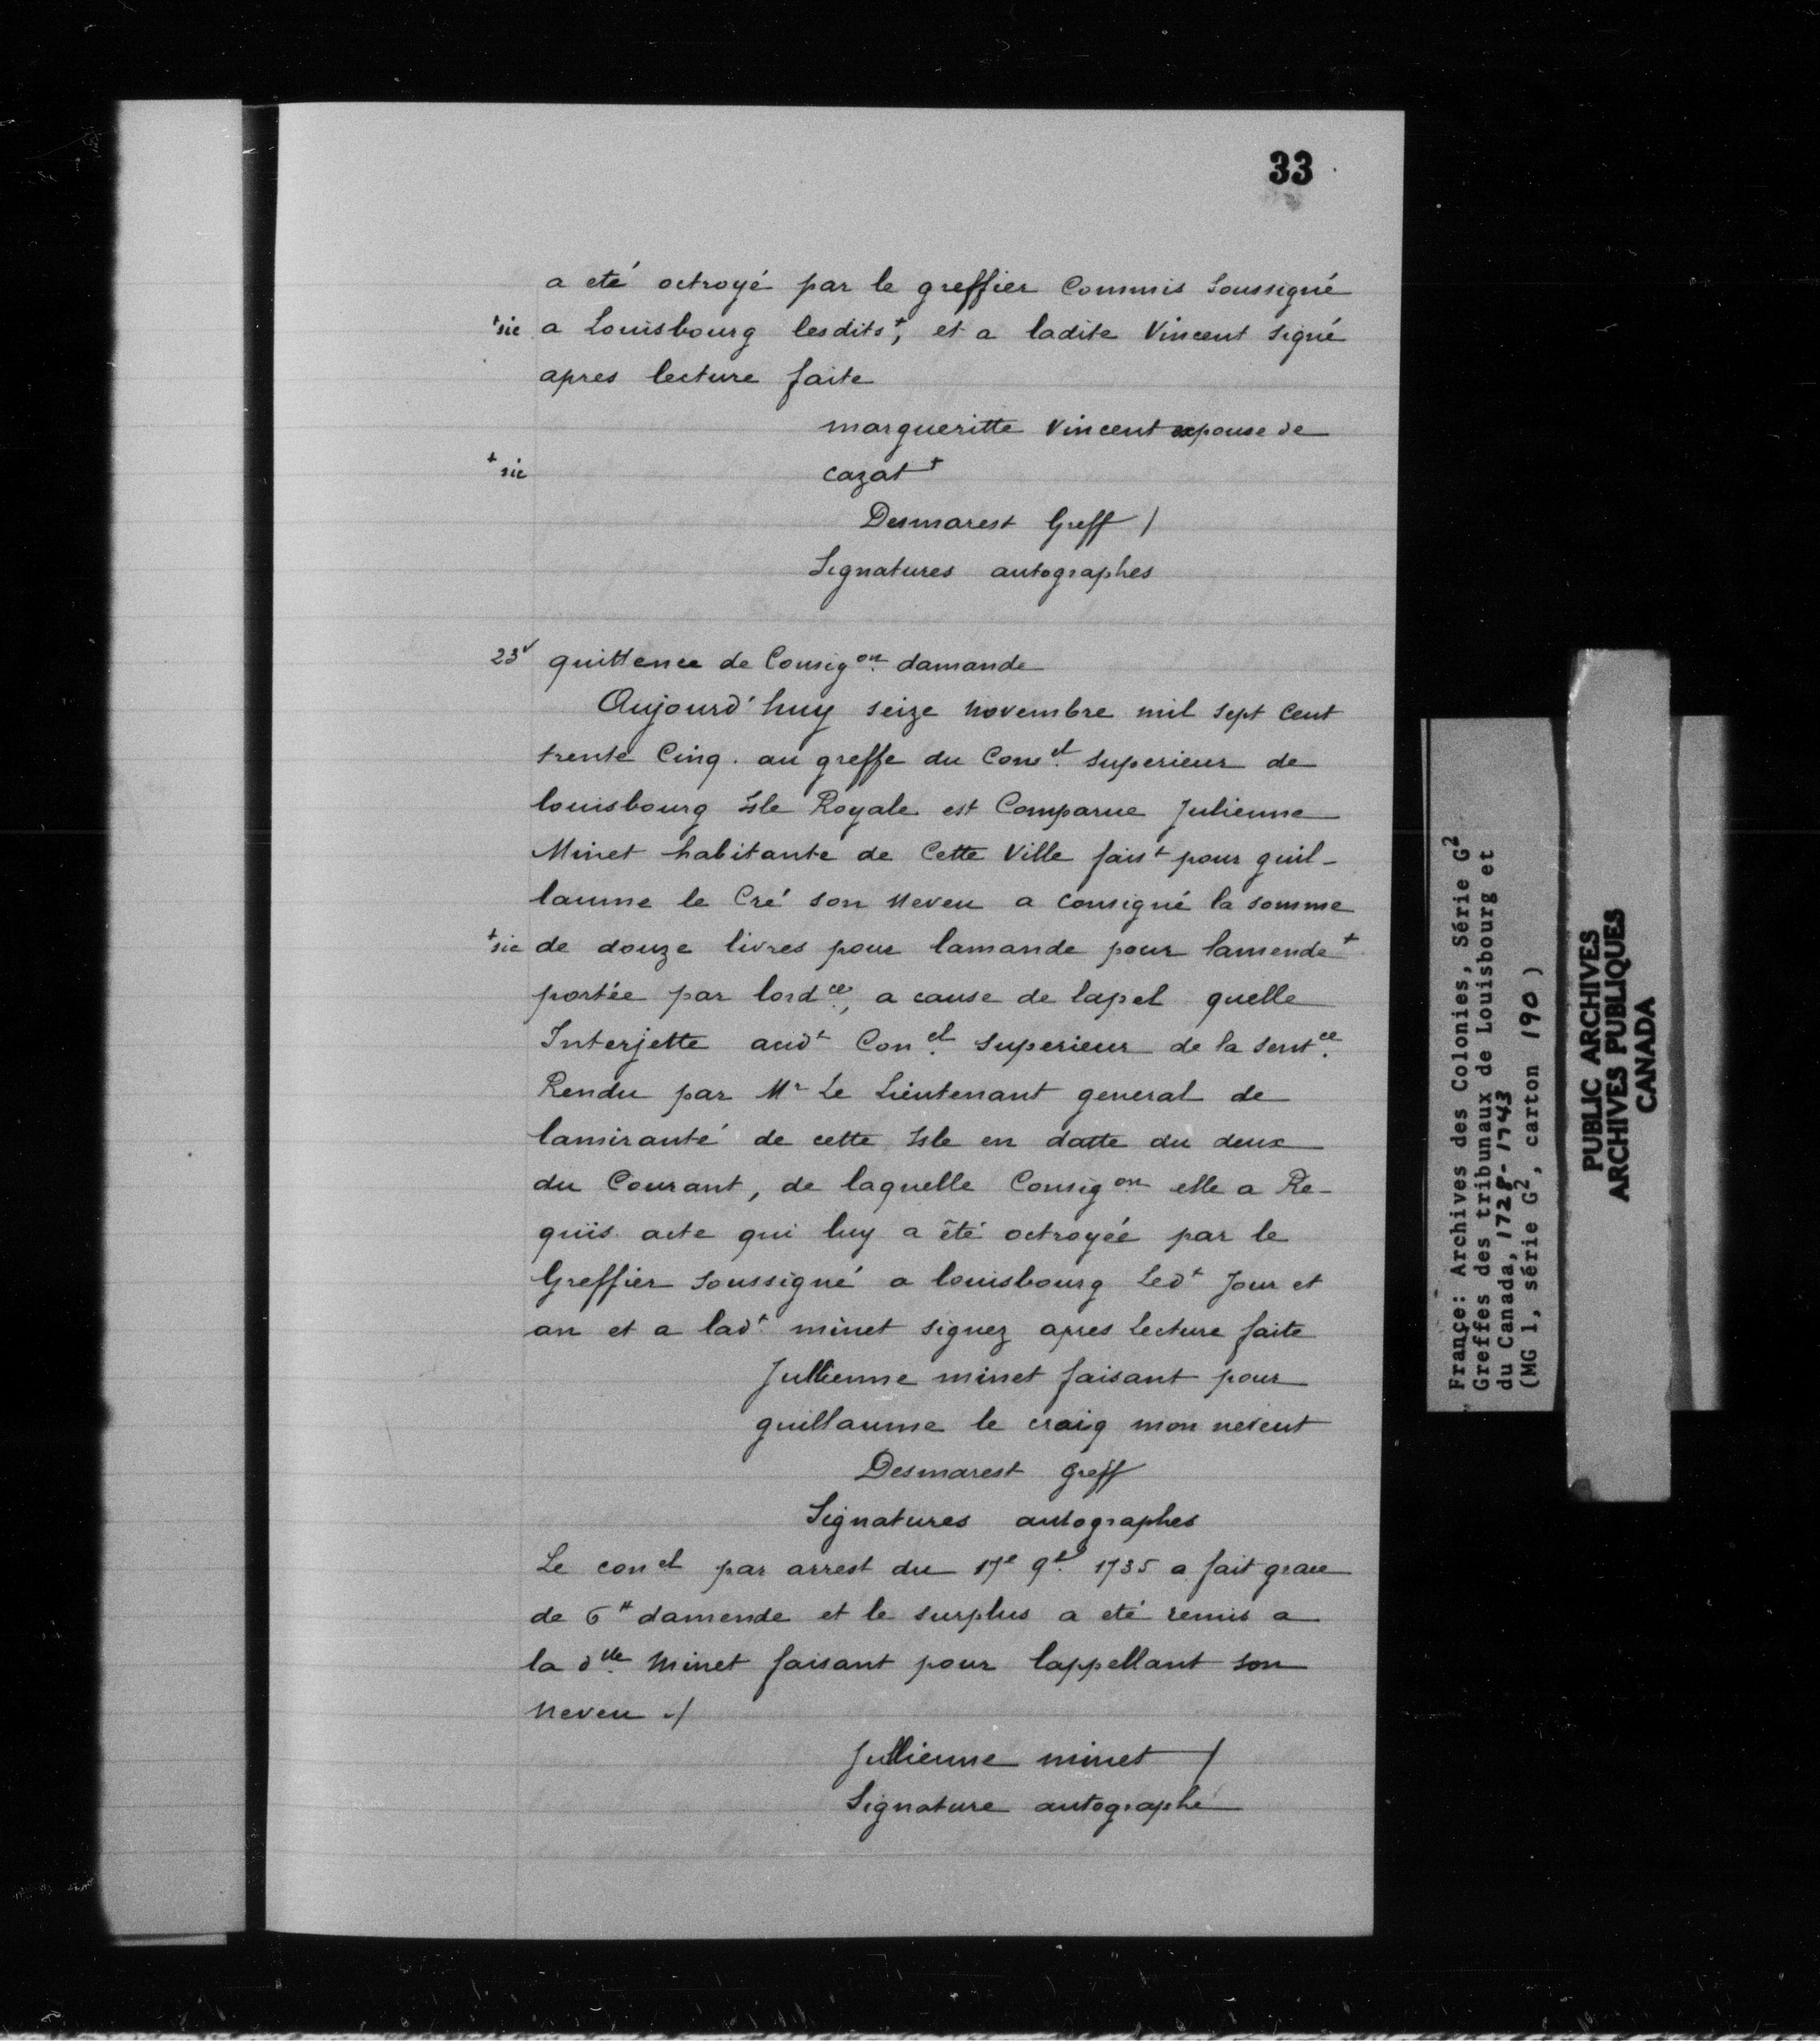 33
a eté octroyé par le greffier Commis Soussigné
+sic a Louisbourg lesdits+, et a ladite Vincent signé
apres lecture faite
margueritte Vincent expouse de
+sic cazat+
Desmarest Greff /
Signatures autographes
23v quittence de Consigon. damande
Aujourd'huy seize novembre mil sept cent
trente Cinq. au greffe du Conel. superieur de
louisbourg Isle Royale est Comparue Julienne
Minet habitante de Cette Ville faist pour guil-
laume le Cré son neveu a consigné la somme
+sic de douze livres pour lamande pour lamende+
portée par lordce, a cause de lapel quelle
Interjette audt Conel. superieur de la sentce.
Rendu par Mr Le Lieutenant general de
lamirauté de cette Isle en datte du deux
du Courant, de laquelle Consigon elle a Re-
quis acte qui luy a êté octroyée par le
Greffier Soussigné a louisbourg Ledt Jour et
an et a ladt. minet signez apres lecture faite
Jullienne minet faisant pour
guillaume le craig mon neveut
Desmarest greff
Signatures autographes
Le conel par arrest du 17e 9b. 1735 a fait grace
de 6# damende et le surplus a eté remis a
la dlle. Minet faisant pour lappellant son
neveu ./
Jullienne minet /
Signature autographe
France: Archives des Colonies, Série G2
Greffes des tribunaux de Louisbourg et
du Canada, 1728-1743
(MG 1, série G2, carton 190)
PUBLIC ARCHIVES
ARCHIVES PUBLIQUES
CANADA